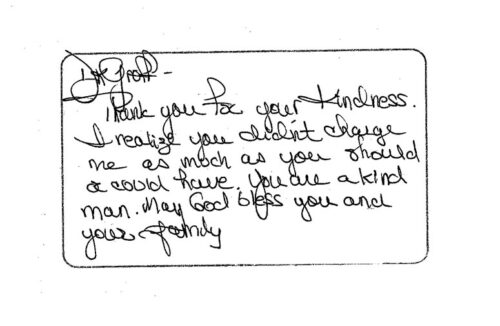 Dr. Groff -
Thank you for your kindness.
I realize you didn't charge
me as much as you should
or could have. You are a kind
man. May God bless you and
your family